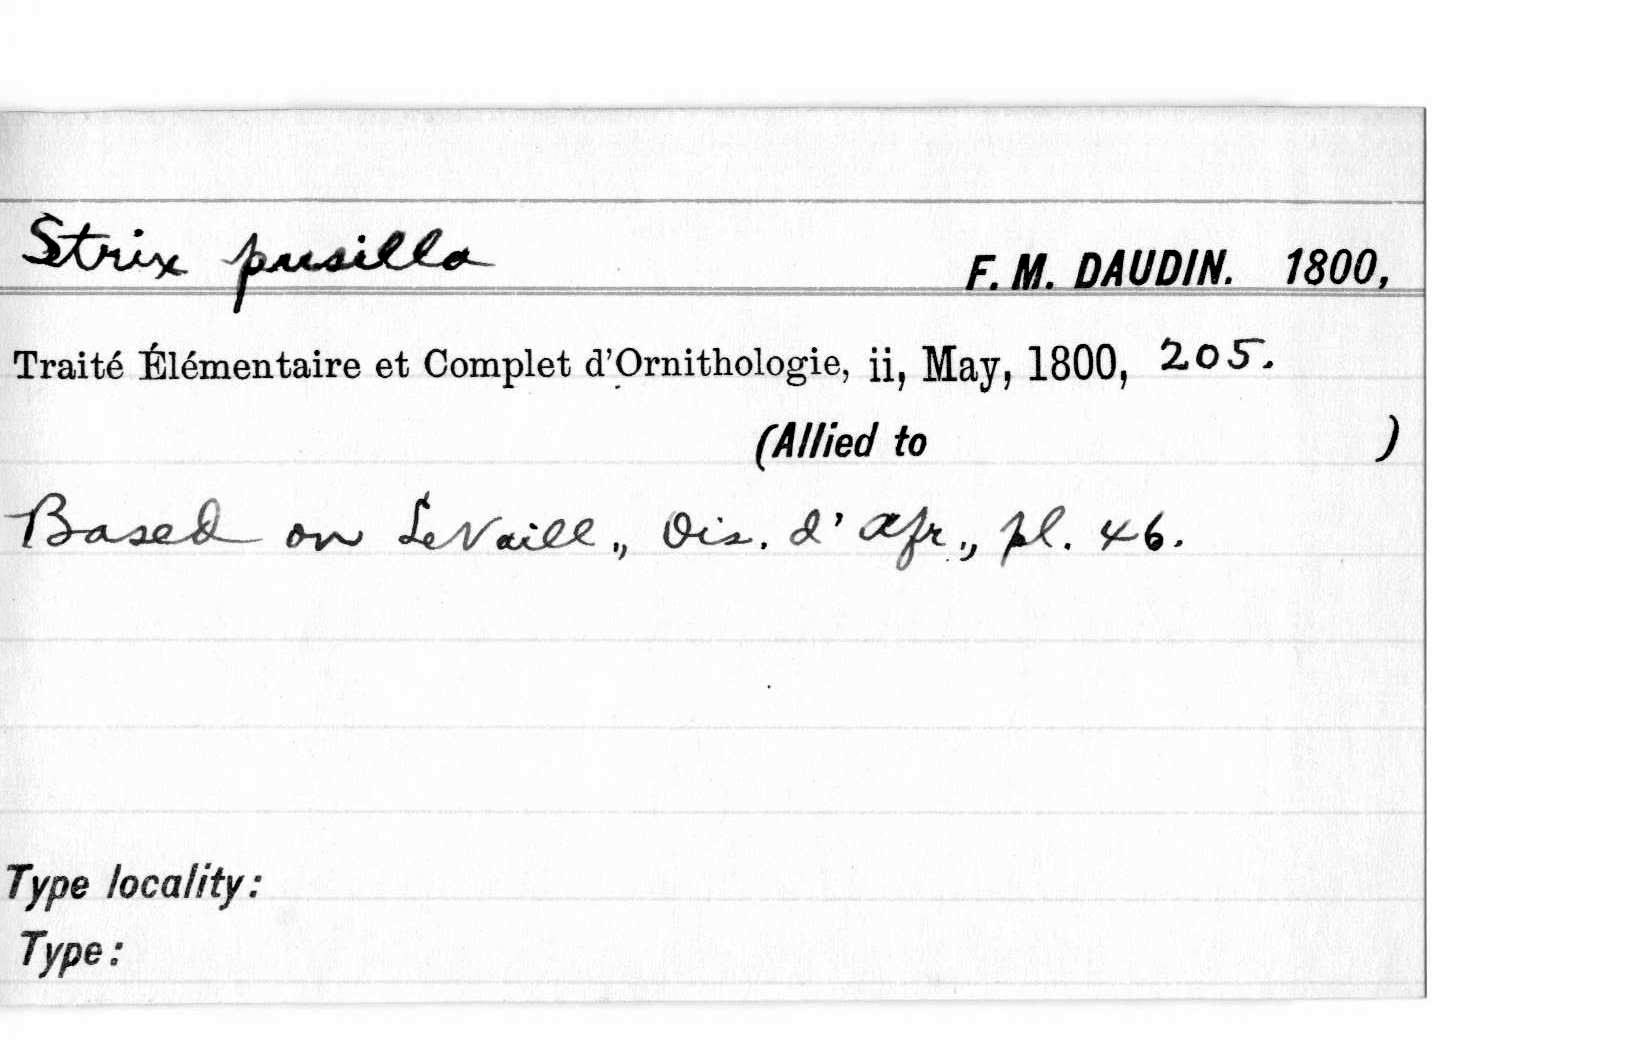 Strix pusilla F. M. DAUDIN. 1800,
Traité Élémentaire et Complet d'Ornithologie, ii, May, 1800, 205.
(Allied to )
Based on LeVaill., Ois. d'Afr., pl. 46.
Type locality:
Type: